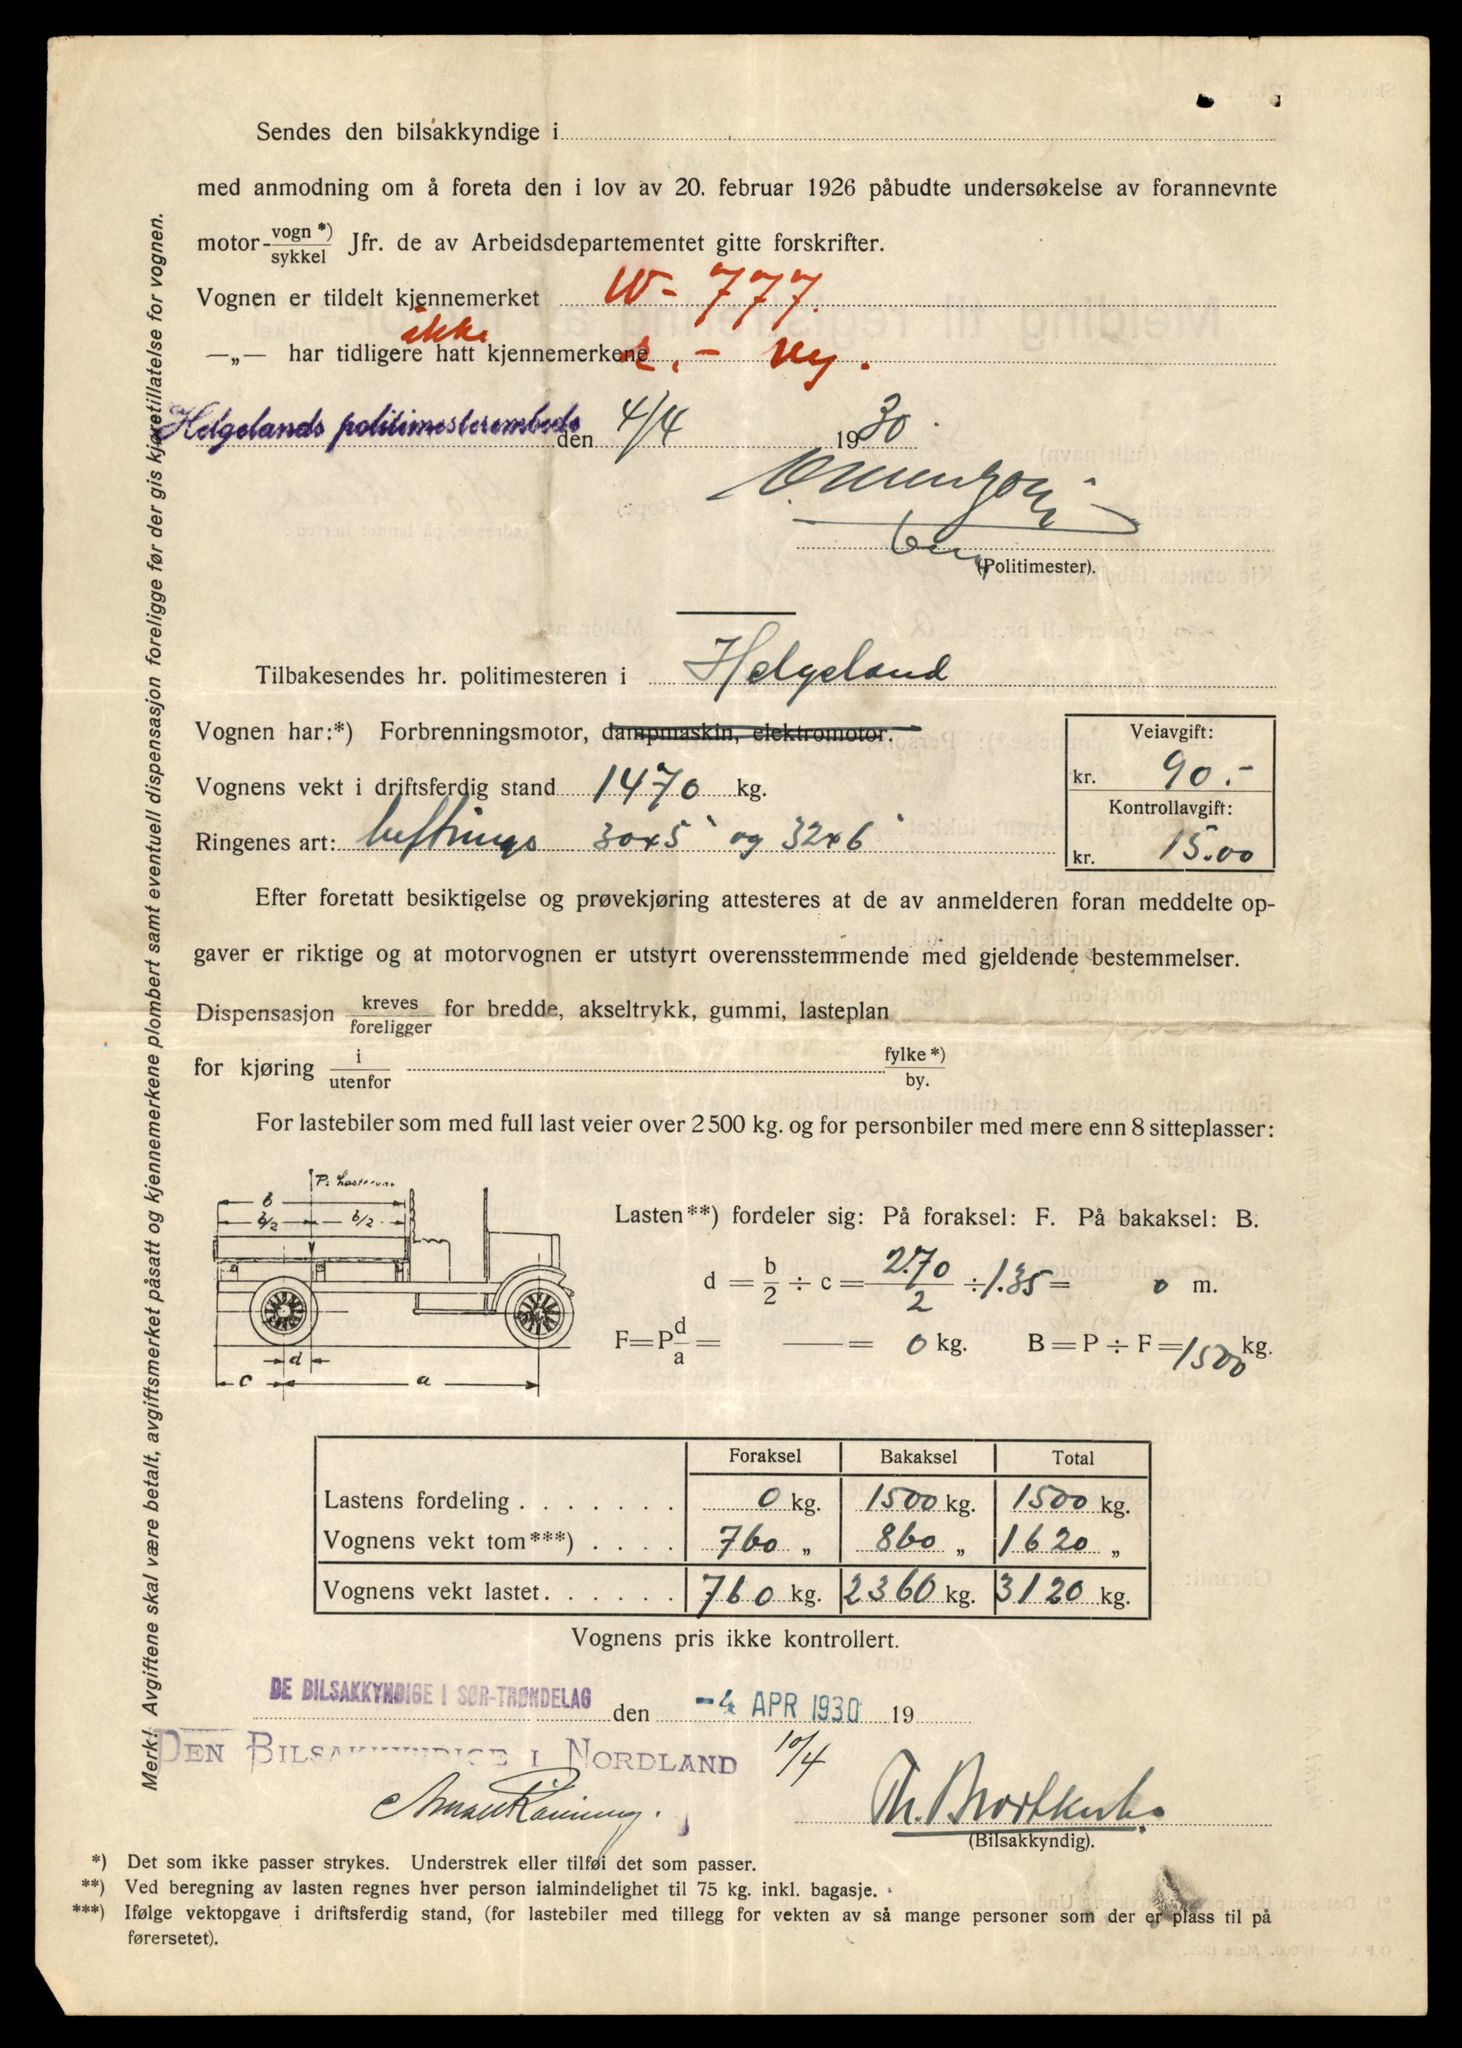 Sendes den bilsakkyndige i
med anmodning om å foreta den i lov av 20. februar 1926 påbudte undersøkelse av forannevnte
motor- vogn *) / sykkel Jfr. de av Arbeidsdepartementet gitte forskrifter.
Vognen er tildelt kjennemerket W- 777.
ikke
—„— har tidligere hatt kjennemerkene - ny.
Helgelands politimesterembede den 4/4 1930.
(Politimester).
Tilbakesendes hr. politimesteren i Helgeland
Vognen har:*) Forbrenningsmotor, dampmaskin, elektromotor.
Veiavgift:
kr. 90.-
Vognens vekt i driftsferdig stand 1470 kg.
Kontrollavgift:
kr. 15.00
Ringenes art: luftrings 30x5" og 32x6"
Efter foretatt besiktigelse og prøvekjøring attesteres at de av anmelderen foran meddelte op-
gaver er riktige og at motorvognen er utstyrt overensstemmende med gjeldende bestemmelser.
Dispensasjon kreves / foreligger for bredde, akseltrykk, gummi, lasteplan
for kjøring i / utenfor fylke *) / by.
For lastebiler som med full last veier over 2500 kg. og for personbiler med mere enn 8 sitteplasser:
P = Lastevekt
b
b/2 b/2
d
c a
Lasten**) fordeler sig: På foraksel: F. På bakaksel: B.
d = b/2 ÷ c = 2.70/2 ÷ 1.35 = 0 m.
F = P d/a = — = 0 kg. B = P ÷ F = 1500 kg.
Foraksel Bakaksel Total
Lastens fordeling . . . . . . . 0 kg. 1500 kg. 1500 kg.
Vognens vekt tom***) . . . . 760 „ 860 „ 1620 „
Vognens vekt lastet . . . . . . 760 kg. 2360 kg. 3120 kg.
Vognens pris ikke kontrollert.
DE BILSAKKYNDIGE I SØR-TRØNDELAG den -4 APR 1930 19
DEN BILSAKKYNDIGE I NORDLAND 10/4
(Bilsakkyndig).
*) Det som ikke passer strykes. Understrek eller tilføi det som passer.
**) Ved beregning av lasten regnes hver person ialmindelighet til 75 kg. inkl. bagasje.
***) Ifølge vektopgave i driftsferdig stand, (for lastebiler med tillegg for vekten av så mange personer som der er plass til på
førersetet).
Merk! Avgiftene skal være betalt, avgiftsmerket påsatt og kjennemerkene plombert samt eventuell dispensasjon foreligge før der gis kjøretillatelse for vognen.